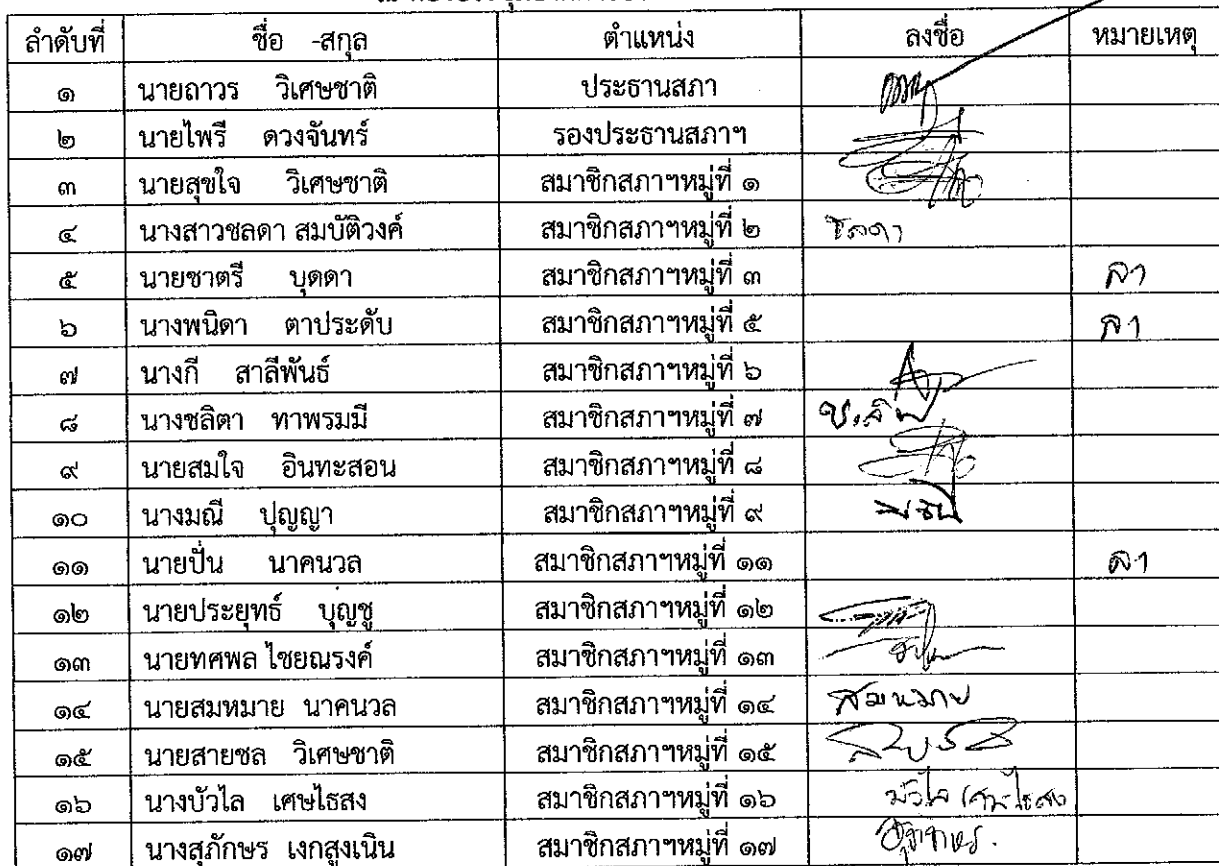 ลำดับที่ ชื่อ -สกุล ตำแหน่ง ลงชื่อ หมายเหตุ
๑ นายถาวร วิเศษชาติ ประธานสภา
๒ นายไพรี ดวงจันทร์ รองประธานสภาฯ
๓ นายสุขใจ วิเศษชาติ สมาชิกสภาฯหมู่ที่ ๑
๔ นางสาวชลดา สมบัติวงค์ สมาชิกสภาฯหมู่ที่ ๒ ชลดา
๕ นายชาตรี บุดดา สมาชิกสภาฯหมู่ที่ ๓ ลา
๖ นางพนิดา ตาประดับ สมาชิกสภาฯหมู่ที่ ๕ ลา
๗ นางกี สาลีพันธ์ สมาชิกสภาฯหมู่ที่ ๖
๘ นางชลิตา ทาพรมมี สมาชิกสภาฯหมู่ที่ ๗
๙ นายสมใจ อินทะสอน สมาชิกสภาฯหมู่ที่ ๘
๑๐ นางมณี ปุญญา สมาชิกสภาฯหมู่ที่ ๙
๑๑ นายปั่น นาคนวล สมาชิกสภาฯหมู่ที่ ๑๑ ลา
๑๒ นายประยุทธ์ บุญชู สมาชิกสภาฯหมู่ที่ ๑๒
๑๓ นายทศพล ไชยณรงค์ สมาชิกสภาฯหมู่ที่ ๑๓
๑๔ นายสมหมาย นาคนวล สมาชิกสภาฯหมู่ที่ ๑๔ สมหมาย
๑๕ นายสายชล วิเศษชาติ สมาชิกสภาฯหมู่ที่ ๑๕
๑๖ นางบัวไล เศษไธสง สมาชิกสภาฯหมู่ที่ ๑๖ บัวไล เศษไธสง
๑๗ นางสุภักษร เงกสูงเนิน สมาชิกสภาฯหมู่ที่ ๑๗